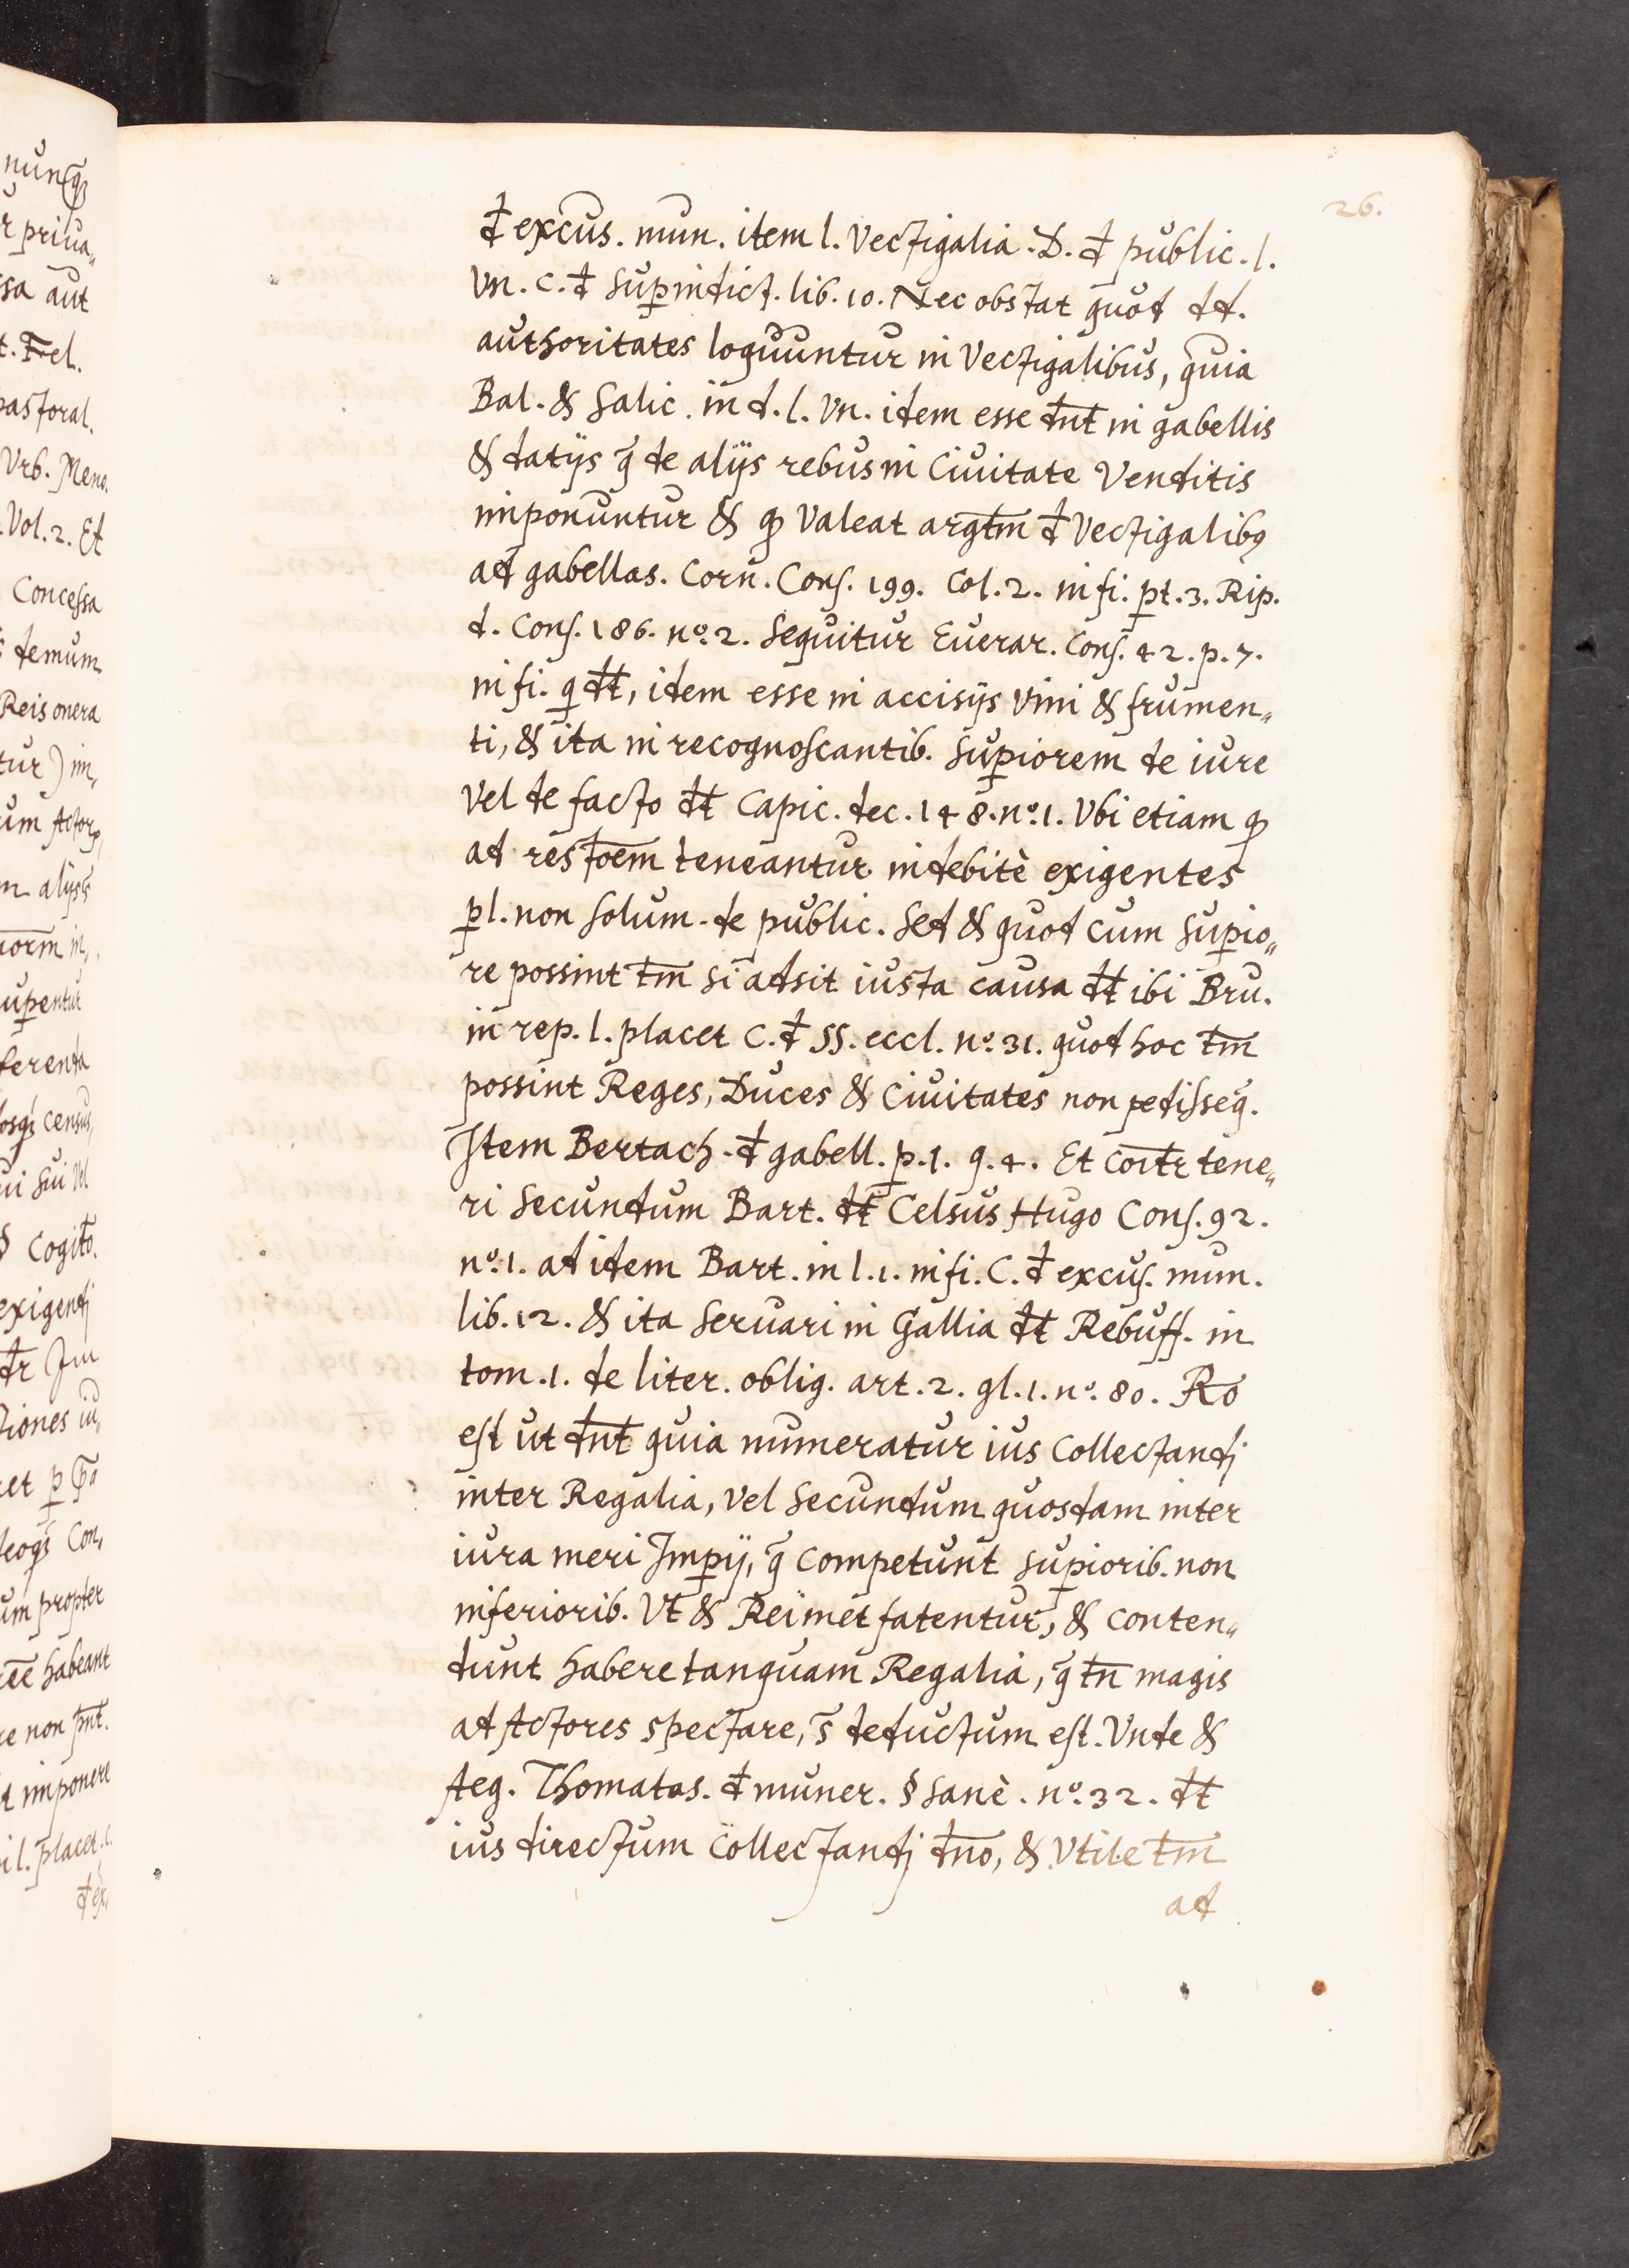 26.
đ excus. mun. item l. Vectigalia. D. đ public. l.
Vn. C. đ Sup̱indict. lib. 10. Nec obstat quod dd.
authoritates loquuntur in Vectigalibus, quia
Bal. & Salic. in d. l. Vn. idem esse dn̄t in gabellis
& datijs q̄ de alijs rebus in Ciuitate Venditis
imponuntur & ꝙ Valeat argt̄m đ Vectigalibꝰ
ad gabellas. Corn. Cons. 199. Col. 2. in fi. pt. 3. Rip.
d. Cons. 186. nº. 2. Sequitur Euerar. Cons. 42. p. 7.
in fi. q dt̄, idem esse in accisijs vini & frumen„
ti, & ita in recognoscantib. Sup̱iorem de iure
Vel de facto dt̄ Capic. dec. 148. nº. 1. Vbi etiam ꝙ
ad restōem teneantur indebitè exigentes
ꝑ l. non Solum. de public. Sed & quod cum Sup̱io„
re possint tm̄ si adsit iusta causa dt̄ ibi Bru.
in rep. l. placet C. đ SS. eccl. nº. 31. quod hoc tm̄
possint Reges, Duces & Ciuitates non pedisseq̄.
Item Bertach. đ gabell. p. 1. q. 4. Et cōītr tene„
ri Secundum Bart. dt̄ Celsus Hugo Cons. 92.
nº. 1. ad idem Bart. in l. 1. in fi. C. đ excus. mun.
lib. 12. & ita Seruari in Gallia dt̄ Rebuff. in
tom. 1. de liter. oblig. art. 2. gl. 1. nº. 80. Rō
est ut dn̄t quia numeratur ius Collectandj
inter Regalia, Vel Secundum quosdam inter
iura meri Imp̱ij, q̄ Competunt Sup̱iorib. non
inferiorib. Vt & Rei met fatentur, & conten„
dunt habere tanquam Regalia, q̄ tn̄ magis
ad Actores spectare, s̄ deductum est. Vnde &
Aeg. Thomatas. đ muner. § Sanè. nº. 32. dt̄
ius directum Collectandj dn̄o, & Vtile tm̄
ad